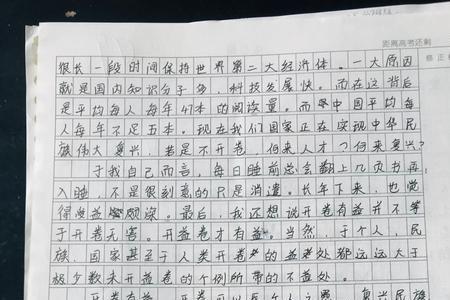 距离高考还剩
修正
很长一段时间保持世界第二大经济体。一大原因
就是国内知识分子多，科技发展快。而在这背后
是平均每人每年47本的阅读量。而中国平均每
人每年不足五本。现在我们国家正在实现中华民
族伟大复兴，若是不开卷，何来人才？何来复兴？
于我自己而言，每日睡前总会翻上几页书再
入睡，不是很刻意的只是消遣。长年下来，也觉
得受益颇深。最后，我还想说开卷有益并不等
于开卷无害。开益卷才有益。当然，于个人，民
族，国家甚至于人类开卷的益处都远远大于
极少数未开益卷的个例所带的不益处。
开卷有益